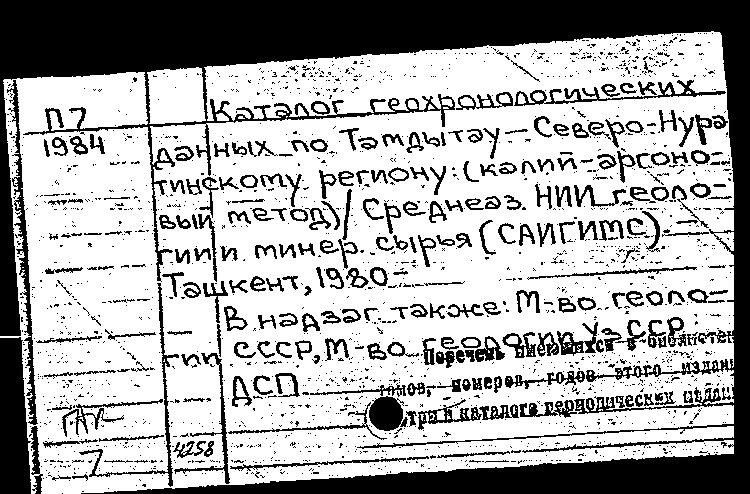 П7
1984
Каталог геохронологических
данных по Тамдытау-Северо-Нура
тинскому региону: (калий-аргоно-
вый метод)/ Среднеаз. НИИ геоло-
гии и минер. сырья (САИГИМС). -
Ташкент, 1980-
В надзаг также: М-во геоло-
гии СССР, М-во геологии УзССР.
ДСП
Перечень имеющихся в библиотек
томов, номеров, годов этого издани
три в каталоге периодических издани
7
4258